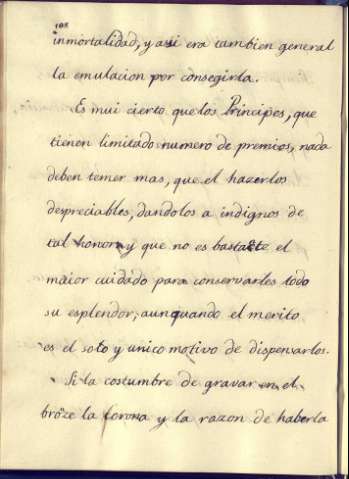 108
inmortalidad, y asi era tambien general
la emulacion por consegirla.
Es mui cierto que los Principes, que
tienen limitado numero de premios, nada
deben temer mas, que el hazerlos
despreciables, dandolos a indignos de
tal honor, y que no es bastante el
maior cuidado para conservarles todo
su esplendor, aun quando el merito
es el solo y unico motivo de dispensarlos.
Si la costumbre de gravar en el
bronze la Corona y la razon de haberla